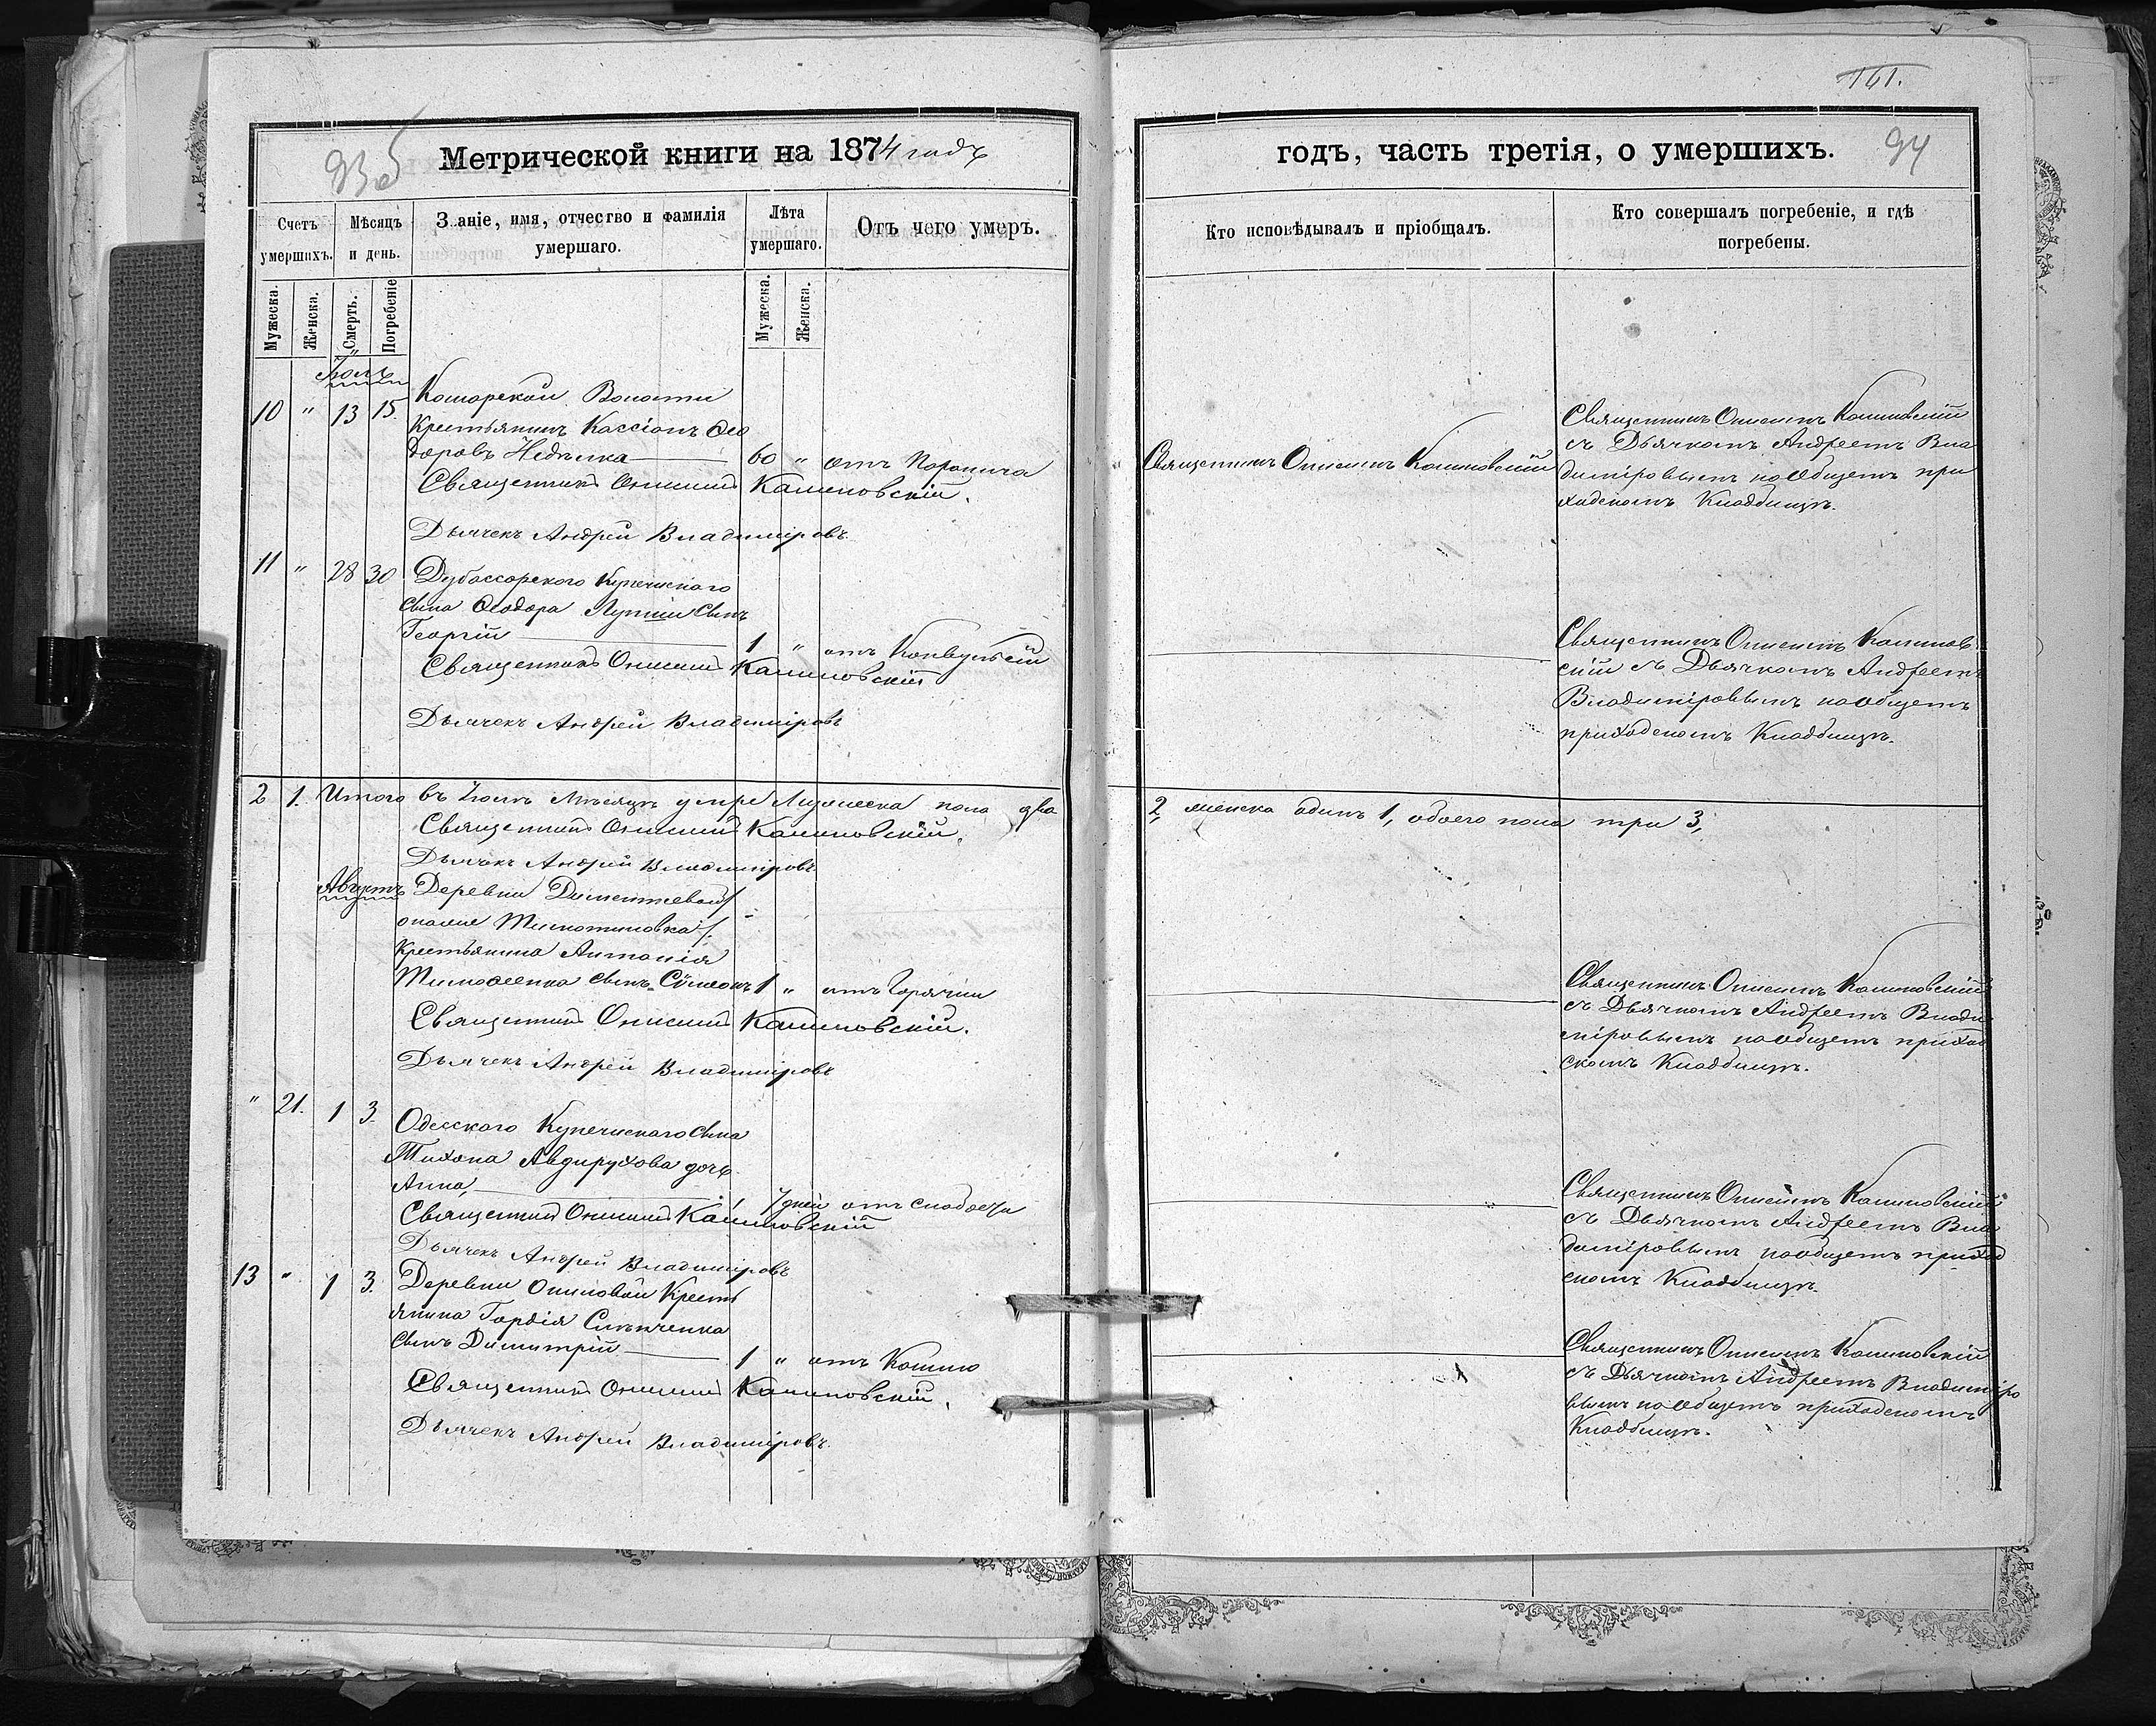 93об
Метрической книги на 1874 годъ
Счетъ умершихъ.
Мѣсяцъ и день.
Званіе, имя, отчество и фамилія умершаго.
Лѣта умершаго.
Отъ чего умеръ.
Мужеска.
Женска.
Смерть.
Погребеніе
Мужеска.
Женска.
Іюль
10 " 13 15. Комарской Волости
Крестьянинъ Кассіонъ Ѳео
доровъ Недѣлка 60 " отъ Поронича
Священникъ Онисимъ Калиновскій.
Дьячекъ Андрей Владиміровъ
11 " 28 30 Дубоссарского Купеческаго
сына Ѳеодора Лупши сынъ
Георгій 1 " отъ Конвульсій
Священникъ Онисимъ Калиновскій
Дьячекъ Андрей Владиміровъ
2 1. Итого въ Іюлѣ Мѣсяцѣ умре Мужеска пола два
Священникъ Онисимъ Калиновскій.
Дьячекъ Андрей Владиміровъ
Августъ Деревни Дементьевой
Крестьянина Антонія
Тимоѳеенка сынъ Сѵмеонъ 1 " отъ Горячки
Священникъ Онисимъ Калиновскій.
Дьячекъ Андрей Владиміровъ
" 21. 1 3. Одесского Купеческаго сына
Тихона Авдирухова дочь
Анна, 7 дней отъ слабости
Священникъ Онисимъ Калиновскій
Дьячекъ Андрей Владиміровъ
13 " 1 3. Деревни Осиповой Кресть
янина Гордія Слѣпченка
сынъ Димитрій 1 " отъ Кашлю
Священникъ Онисимъ Калиновскій.
Дьячекъ Андрей Владиміровъ.
161.
годъ, часть третія, о умершихъ.
94
Кто исповѣдывалъ и пріобщалъ.
Кто совершалъ погребеніе, и гдѣ
погребены.
Священникъ Онисимъ Калиновскій
Священникъ Онисимъ Калиновскій
съ Дьячкомъ Андреемъ Вла
диміровымъ на Общемъ при
ходскомъ Кладбищѣ.
Священникъ Онисимъ Калинов
скій съ Дьячкомъ Андреемъ
Владиміровымъ на Общемъ
приходскомъ Кладбищѣ.
2, женска одинъ 1, обоего пола три 3,
Священникъ Онисимъ Калиновскій
съ Дьячкомъ Андреемъ Влади
міровымъ на Общемъ приход
скомъ Кладбищѣ.
Священникъ Онисимъ Калиновскій
съ Дьячкомъ Андреемъ Вла
диміровымъ на Общемъ приход
скомъ Кладбищѣ.
Священникъ Онисимъ Калиновскій
съ Дьячкомъ Андреемъ Владиміро
вымъ на Общемъ приходскомъ
Кладбищѣ.